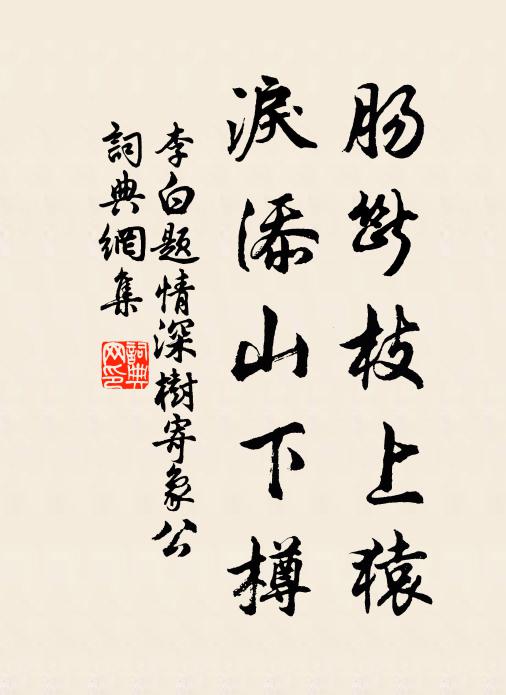 腸斷枝上猿
淚添山下樽
李白題情深樹寄象公
詞典網集
詞典
网印